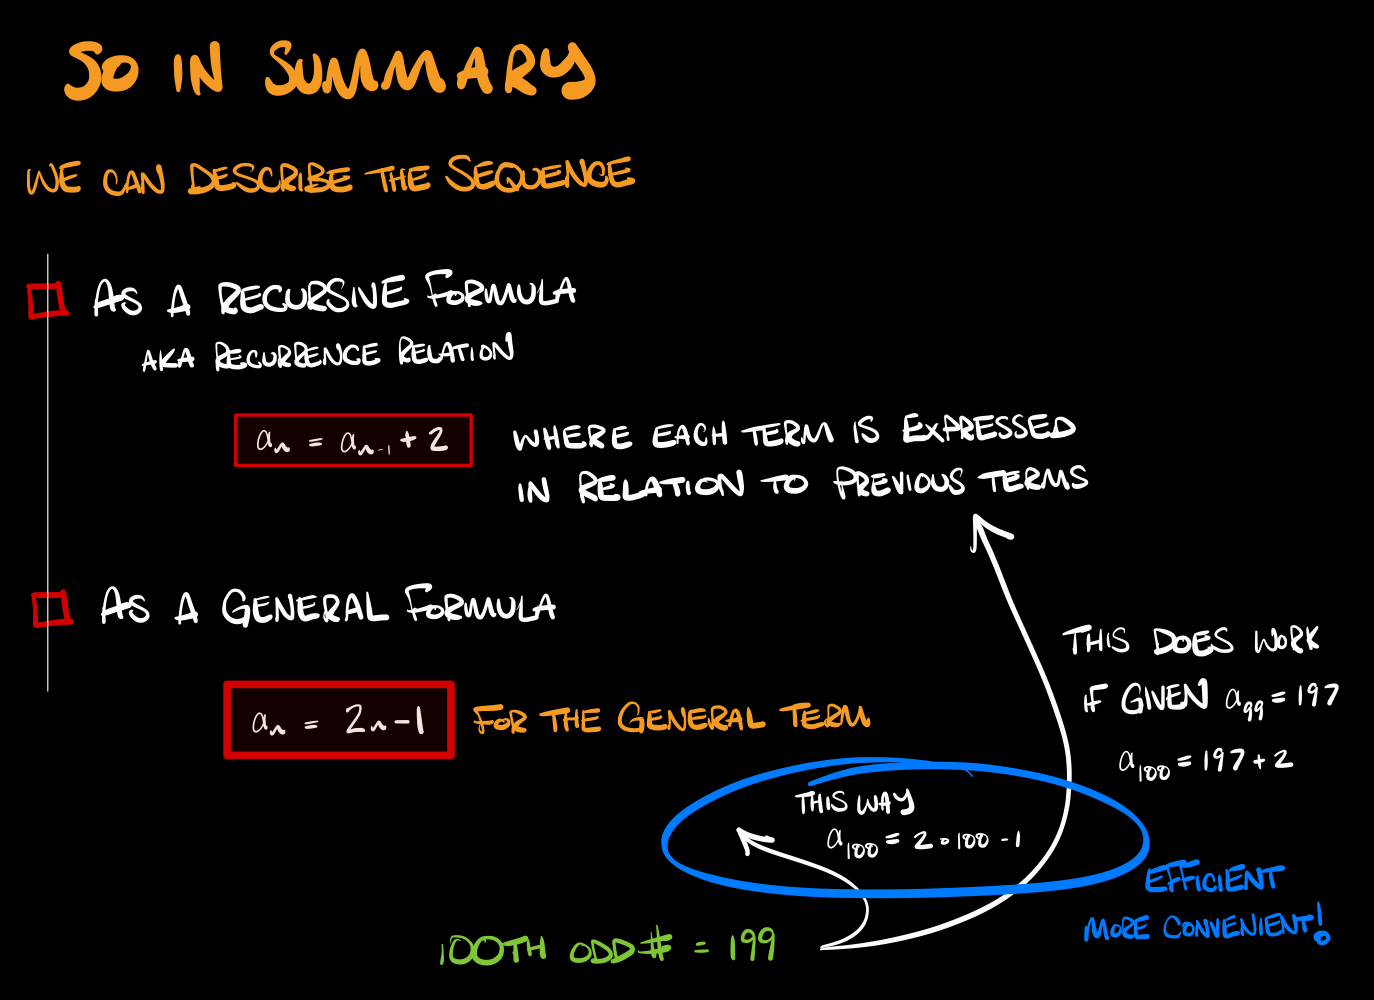 SO IN SUMMARY
WE CAN DESCRIBE THE SEQUENCE
AS A RECURSIVE FORMULA
AKA RECURRENCE RELATION
aₙ = aₙ₋₁ + 2
WHERE EACH TERM IS EXPRESSED
IN RELATION TO PREVIOUS TERMS
AS A GENERAL FORMULA
aₙ = 2n-1
FOR THE GENERAL TERM
THIS DOES WORK
IF GIVEN a₉₉ = 197
a₁₀₀ = 197 + 2
THIS WAY
a₁₀₀ = 2 • 100 - 1
EFFICIENT
MORE CONVENIENT!
100TH ODD # = 199